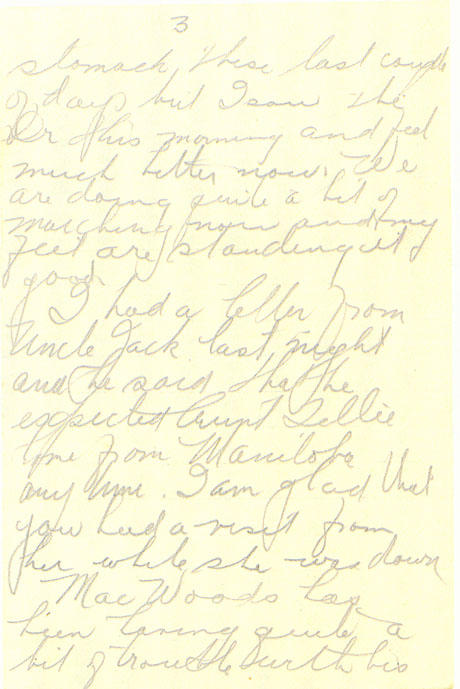 3
stomach these last couple
of days but I saw the
Dr this morning and feel
much better now. We
are doing quite a bit of
marching now and my
feet are standing it
good.
I had a letter from
Uncle Jack last night
and he said that he
expected Aunt Tellie
home from Manitoba
any time. I am glad that
you had a visit from
her while she was down
Mac Woods has
been having quite a
bit of trouble with his